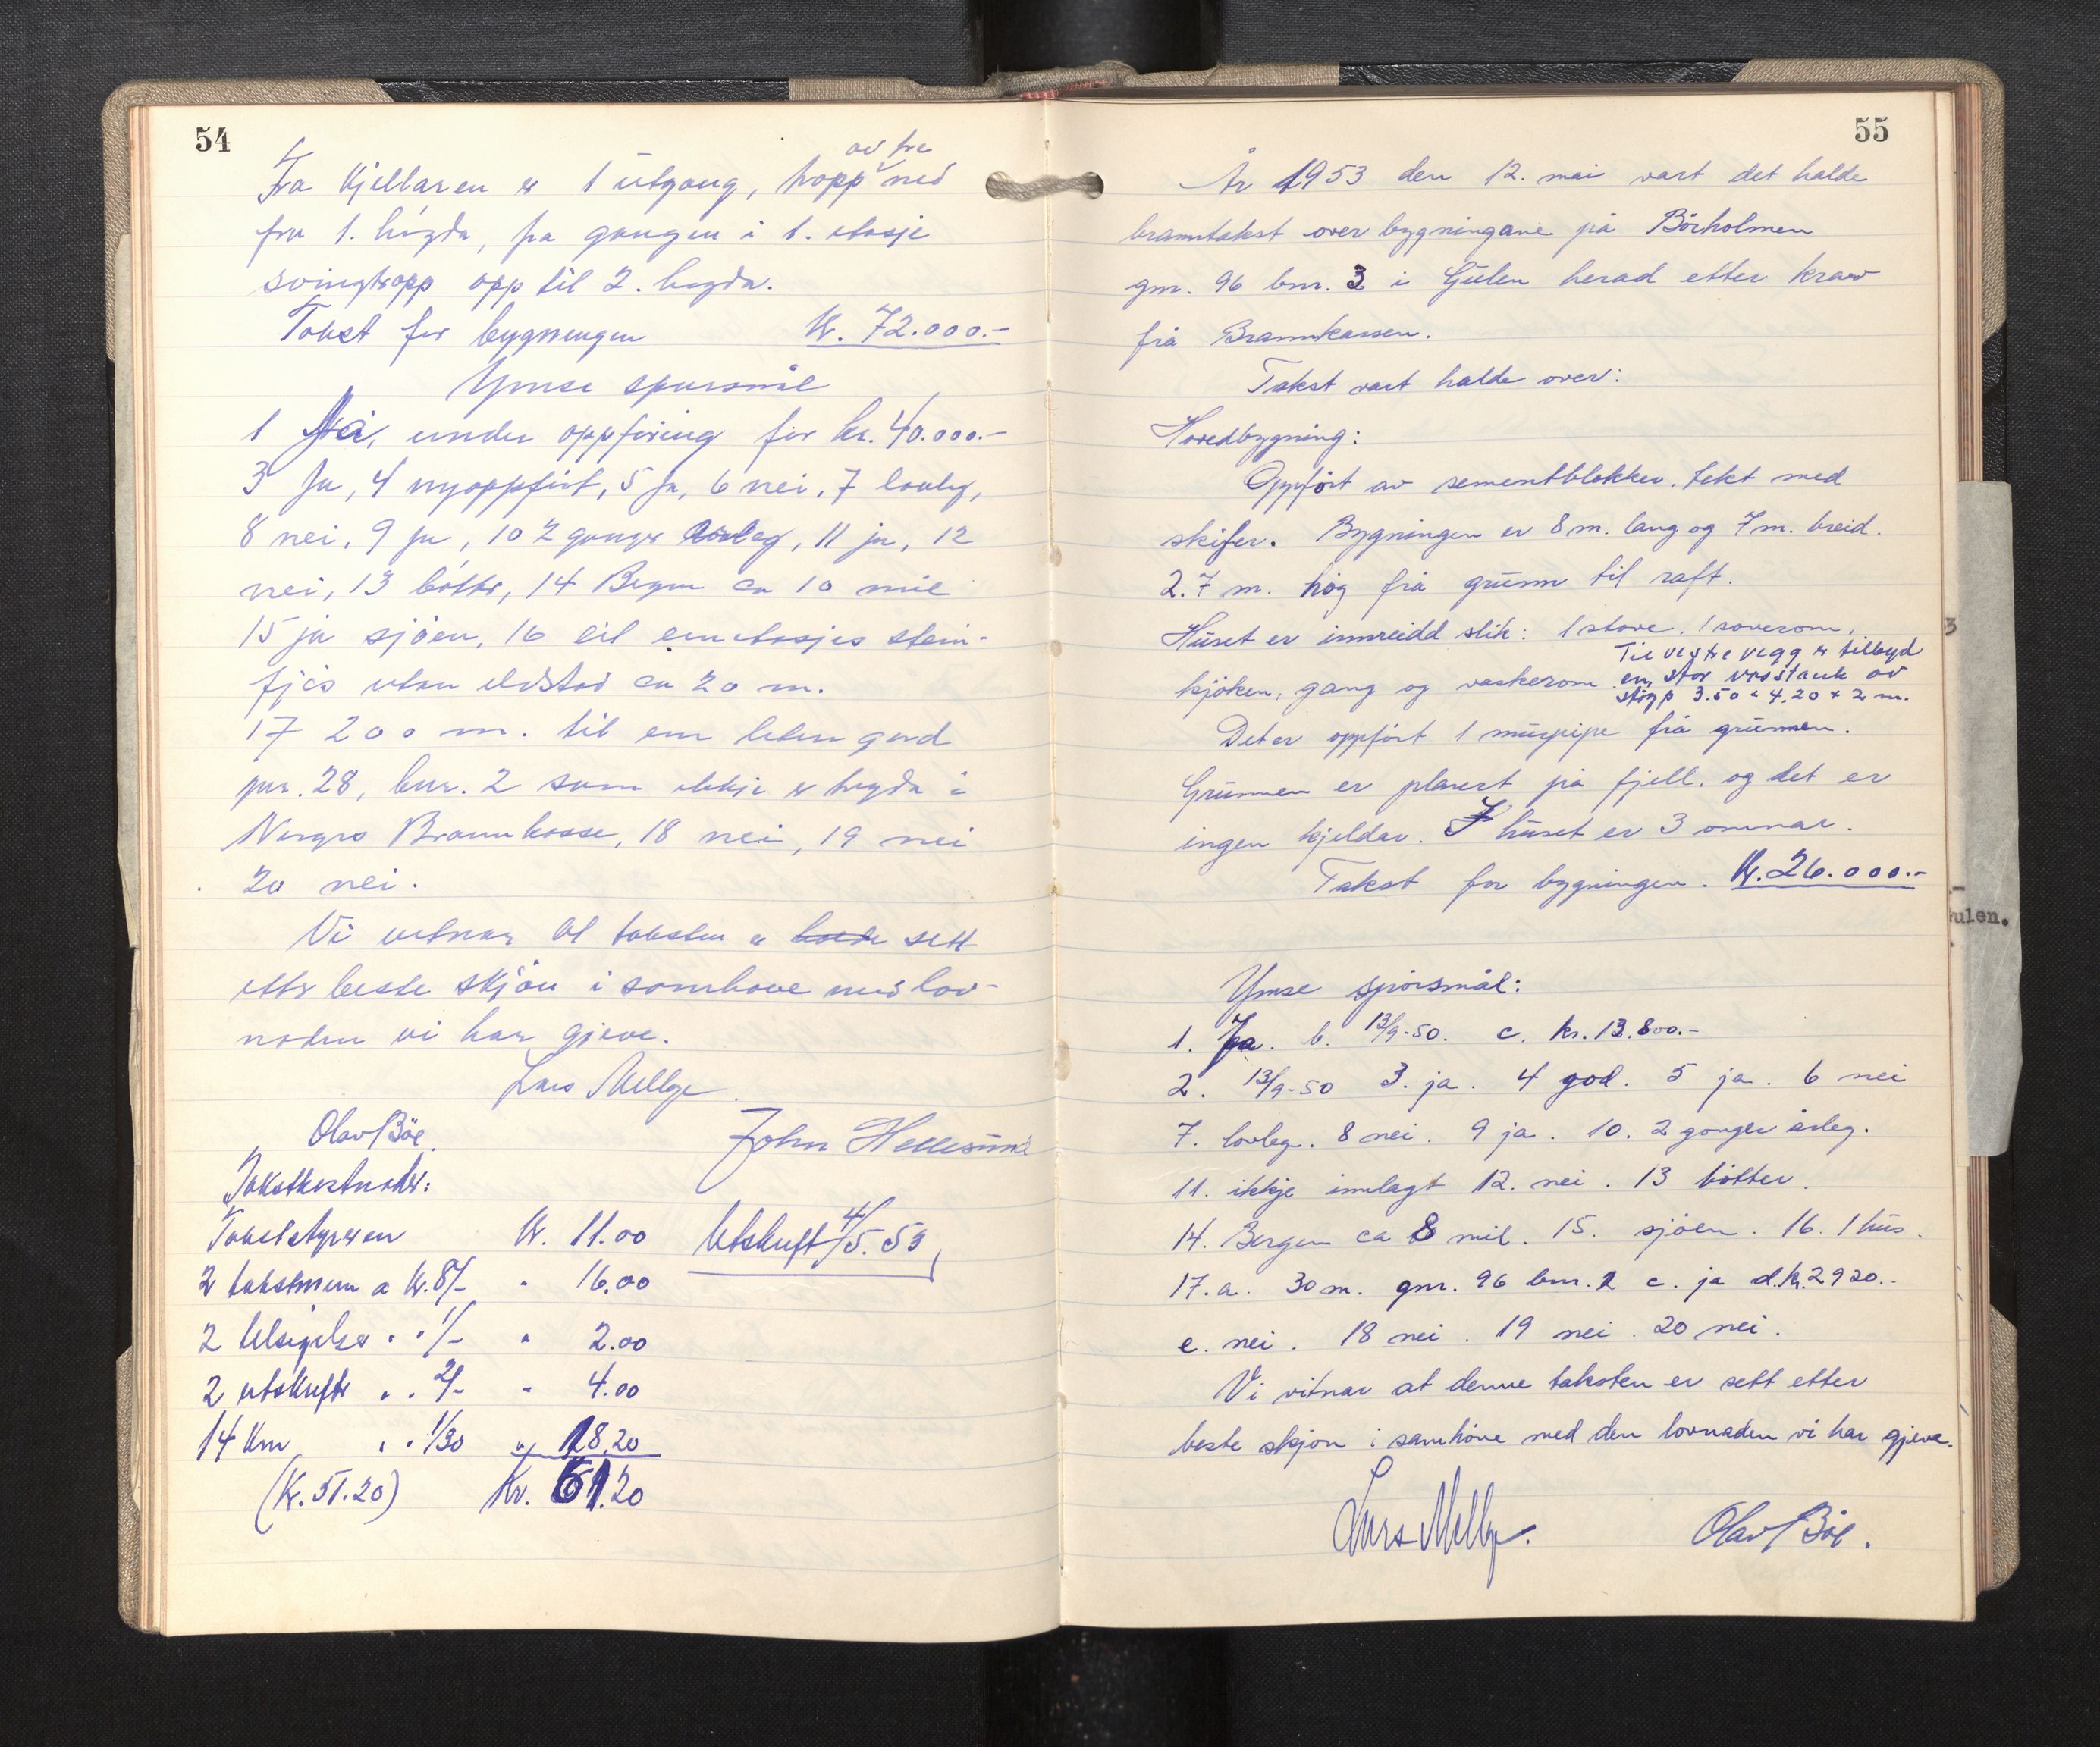 54
av tre
Fra Kjellaren er 1 utgang, trapp ned
fra 1. högda, fra gangen i 1. etasje
svingtrapp opp til 2. högda.
Takst for bygningen Kr. 72.000.-
Ymse spursmål
1 Ja, under oppföring for kr. 40.000.-
3 Ja, 4 nyoppfört, 5 ja, 6 nei, 7 lovleg,
8 nei, 9 ja, 10 2 ganger årleg, 11 ja, 12
nei, 13 bötter, 14 Bergen ca 10 mil
15 ja sjöen, 16 eit einetasjes stein-
fjös utan eldstad ca 20 m.
17 200 m. til ein liten gard
gnr. 28, bnr. 2 som ikkje er trygda i
Norges Brannkasse, 18 nei, 19 nei
20 nei.
Vi vitnar at taksten er sett
etter beste skjön i samhöve med lov-
naden vi har gjeve.
Lars Mellge
Olav Böe John Hellesund
Takstkostnader:
Takststyraren Kr. 11.00 Utskrift 4/5. 53
2 takstmenn a Kr. 8/- " 16.00
2 tilsigelser " " 1/- " 2.00
2 utskrifter " " 2/- " 4.00
14 Km " " 1/30 " 18.20
(Kr. 51.20) Kr. 51.20
55
År 1953 den 12. mai vart det halde
branntakst over bygningane på Börholmen
gnr. 96 bnr. 3 i Gulen herad etter krav
frå Brannkassen.
Takst vart halde over:
Hovedbygning:
Oppfört av sementblokker, tekt med
skifer. Bygningen er 8 m. lang og 7 m. breid.
2.7 m. høg frå grunn til raft.
Huset er innreidd slik: 1 stove, 1 soverom,
kjöken, gang og vaskerom. Til vestre vegg er tilbygd
en stor vasstank av
støyp 3.50 x 4.20 x 2 m.
Det er oppfört 1 murpipe frå grunnen.
Grunnen er plasert på fjell, og det er
ingen kjeldar. I huset er 3 omnar.
Takst for bygningen. Kr. 26.000.-
Ymse spörsmål:
1. Ja. b. 13/9-50. c. kr. 13.800.-
2. 13/9-50 3. ja. 4 god. 5 ja. 6 nei
7. lovleg. 8 nei. 9 ja. 10. 2 gonger årleg.
11. ikkje innlagt 12. nei. 13 bötter.
14. Bergen ca 8 mil. 15. sjöen. 16. 1 hus.
17. a. 30 m. gnr. 96 bnr. 2 c. ja d. kr. 2920.-
e. nei. 18 nei. 19 nei. 20 nei.
Vi vitnar at denne taksten er sett etter
beste skjön i samhöve med den lovnaden vi har gjeve.
Lars Mellge. Olav Böe.
3
ulen.